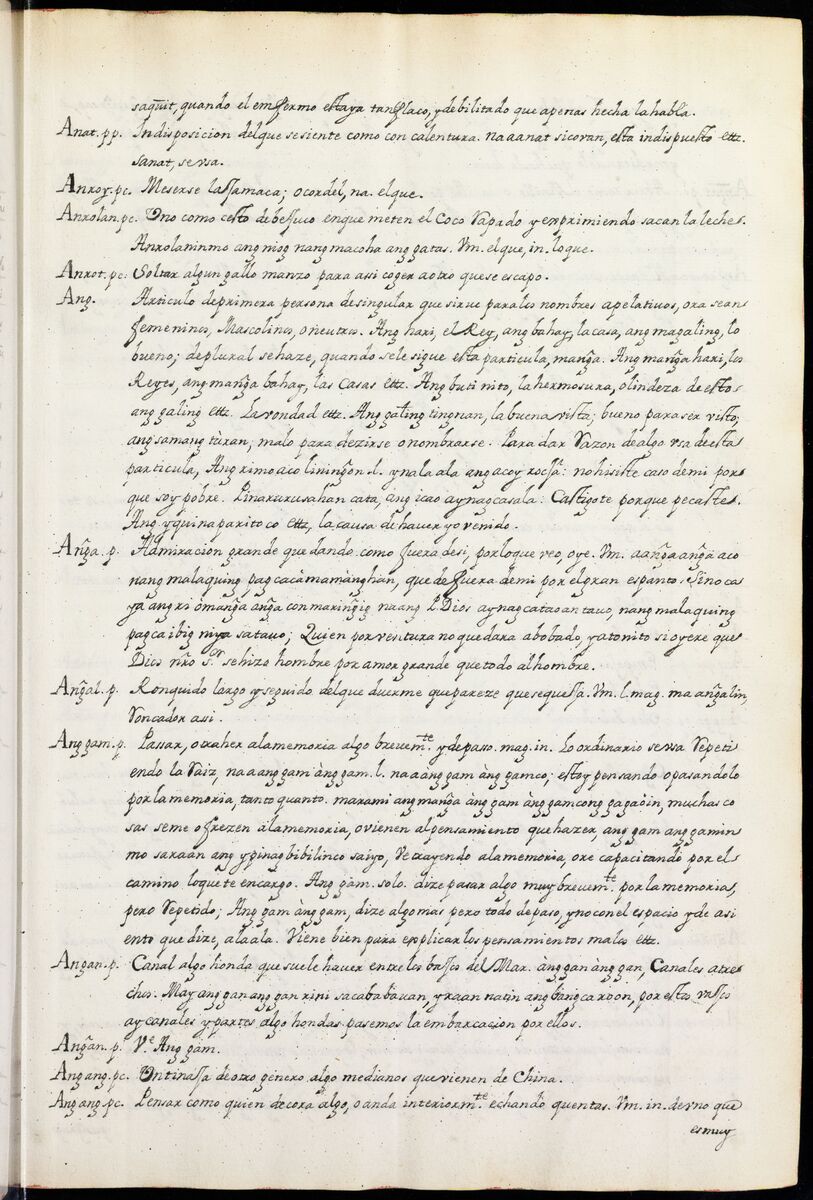 saqūit, quando el enfermo estaya tan flaco, y debilitado que apenas hecha la habla.
Anat. pp. Indisposicion del que se siente como con calentura. na aanat sicoran, esta indispuesto etc.
sanat, se vsa.
Anxoy. pc. Meserse la ssamaca; o cordel, na. el que.
Anxolan. pc. Uno como cesto de bessuco en que meten el Coco rapado y exprimiendo sacan la leche.
Anxolaninmo ang niog nang macoha ang gatas. Vm. el que, in. lo que.
Anxot. pc. Soltar algun gallo manzo para asi coger a otro que se escapo.
Ang. Articulo de primera persona de singular que sirue para los nombres apelativos, ora sean
femeninos, Mascolinos, o neutros. Ang hari, el Rey, ang bahay, la casa, ang magaling, lo
bueno; de plural se haze, quando se le sigue esta particula, manga. Ang manga hari, los
Reyes, ang manga bahay, las Casas etc. Ang buti nito, la hermosura, o lindeza de esto
ang galing etc. La vondad etc. Ang galing tingnan, la buena vista; bueno para ser visto;
ang samang tùran; malo para dezirse o nombrarse. Para dar razon de algo vsa de esta
particula, Ang ximo aco lininḡon. l. ynala ala ang acoy rocha: no hisiste caso de mi por
que soy pobre. Pinarurusahan cata, ang icao ay nagcasala: Castigote porque pecaste.
Ang yquinaparito co etc, la causa de haver yo venido.
Anḡa. p. Admiracion grande quedando como fuera de si, por lo que veo, oye. Vm. aanḡa anḡa aco
nang malaquing pagcacàmamànghan, que de fuera de mi por el gran espanto. Sino ca
ya ang xi omanḡa anḡa con marinḡig na ang P. Dios ay nagcatao an tauo, nang malaquing
pagca ibig niya sa tauo; Quien por ventura no quedara abobado, y atonito si oyere que
Dios nr̃o Sr. se hizo hombre por amor grande que todo al hombre.
Anḡal. p. Ronquido largo y seguido del que duerme que pareze que se quessa. Vm. l. mag. ma anḡalin,
roncador asi.
Ang gam. p. Passar, o traher a la memoria algo brevemte. y de paso. mag. in. Lo ordinario se vsa repeti
endo la raiz, na aang gam àng gam. l. na aàng gam àng gamco; estoy pensando o pasandolo
por la memoria, tanto quanto. marami ang manḡa àng gam àng gamcong gagaòin, muchas co
sas se me ofrezen a la memoria, o vienen al pensamiento que hazer, ang gam ang gamin
mo sa raàn ang ypinagbibilinco saiyo, Ve trayendo a la memoria, o re capacitando por el
camino lo que te encargo. Ang gàm. solo. dize pasar algo muy brevemte. por la memoria,
pero repetido; Ang gam àng gam, dize algo mas pero todo de paso, y no con el espacio y de asi
ento que dize, ala ala. Viene bien para explicar los pensamientos malos etc.
Angan. p. Canal algo honda que suele haver entre los bassos del Mar. àng gan àng gan, Canales atre
chos. May ang gan ang gan rini sa cababàuan, y raan natin ang bangca roon, por estos vassos
ay canales y partes algo hondas pasemos la embarcacion por ellos.
Anḡan. p. Ve. Ang gàm.
Ang ang. pc. Un tinassa de otro genero algo medianos que vienen de China.
Ang ang. pc. Pensar como quien decora algo, o anda interiormte. echando quentas. Vm. in. de vno que
es muy